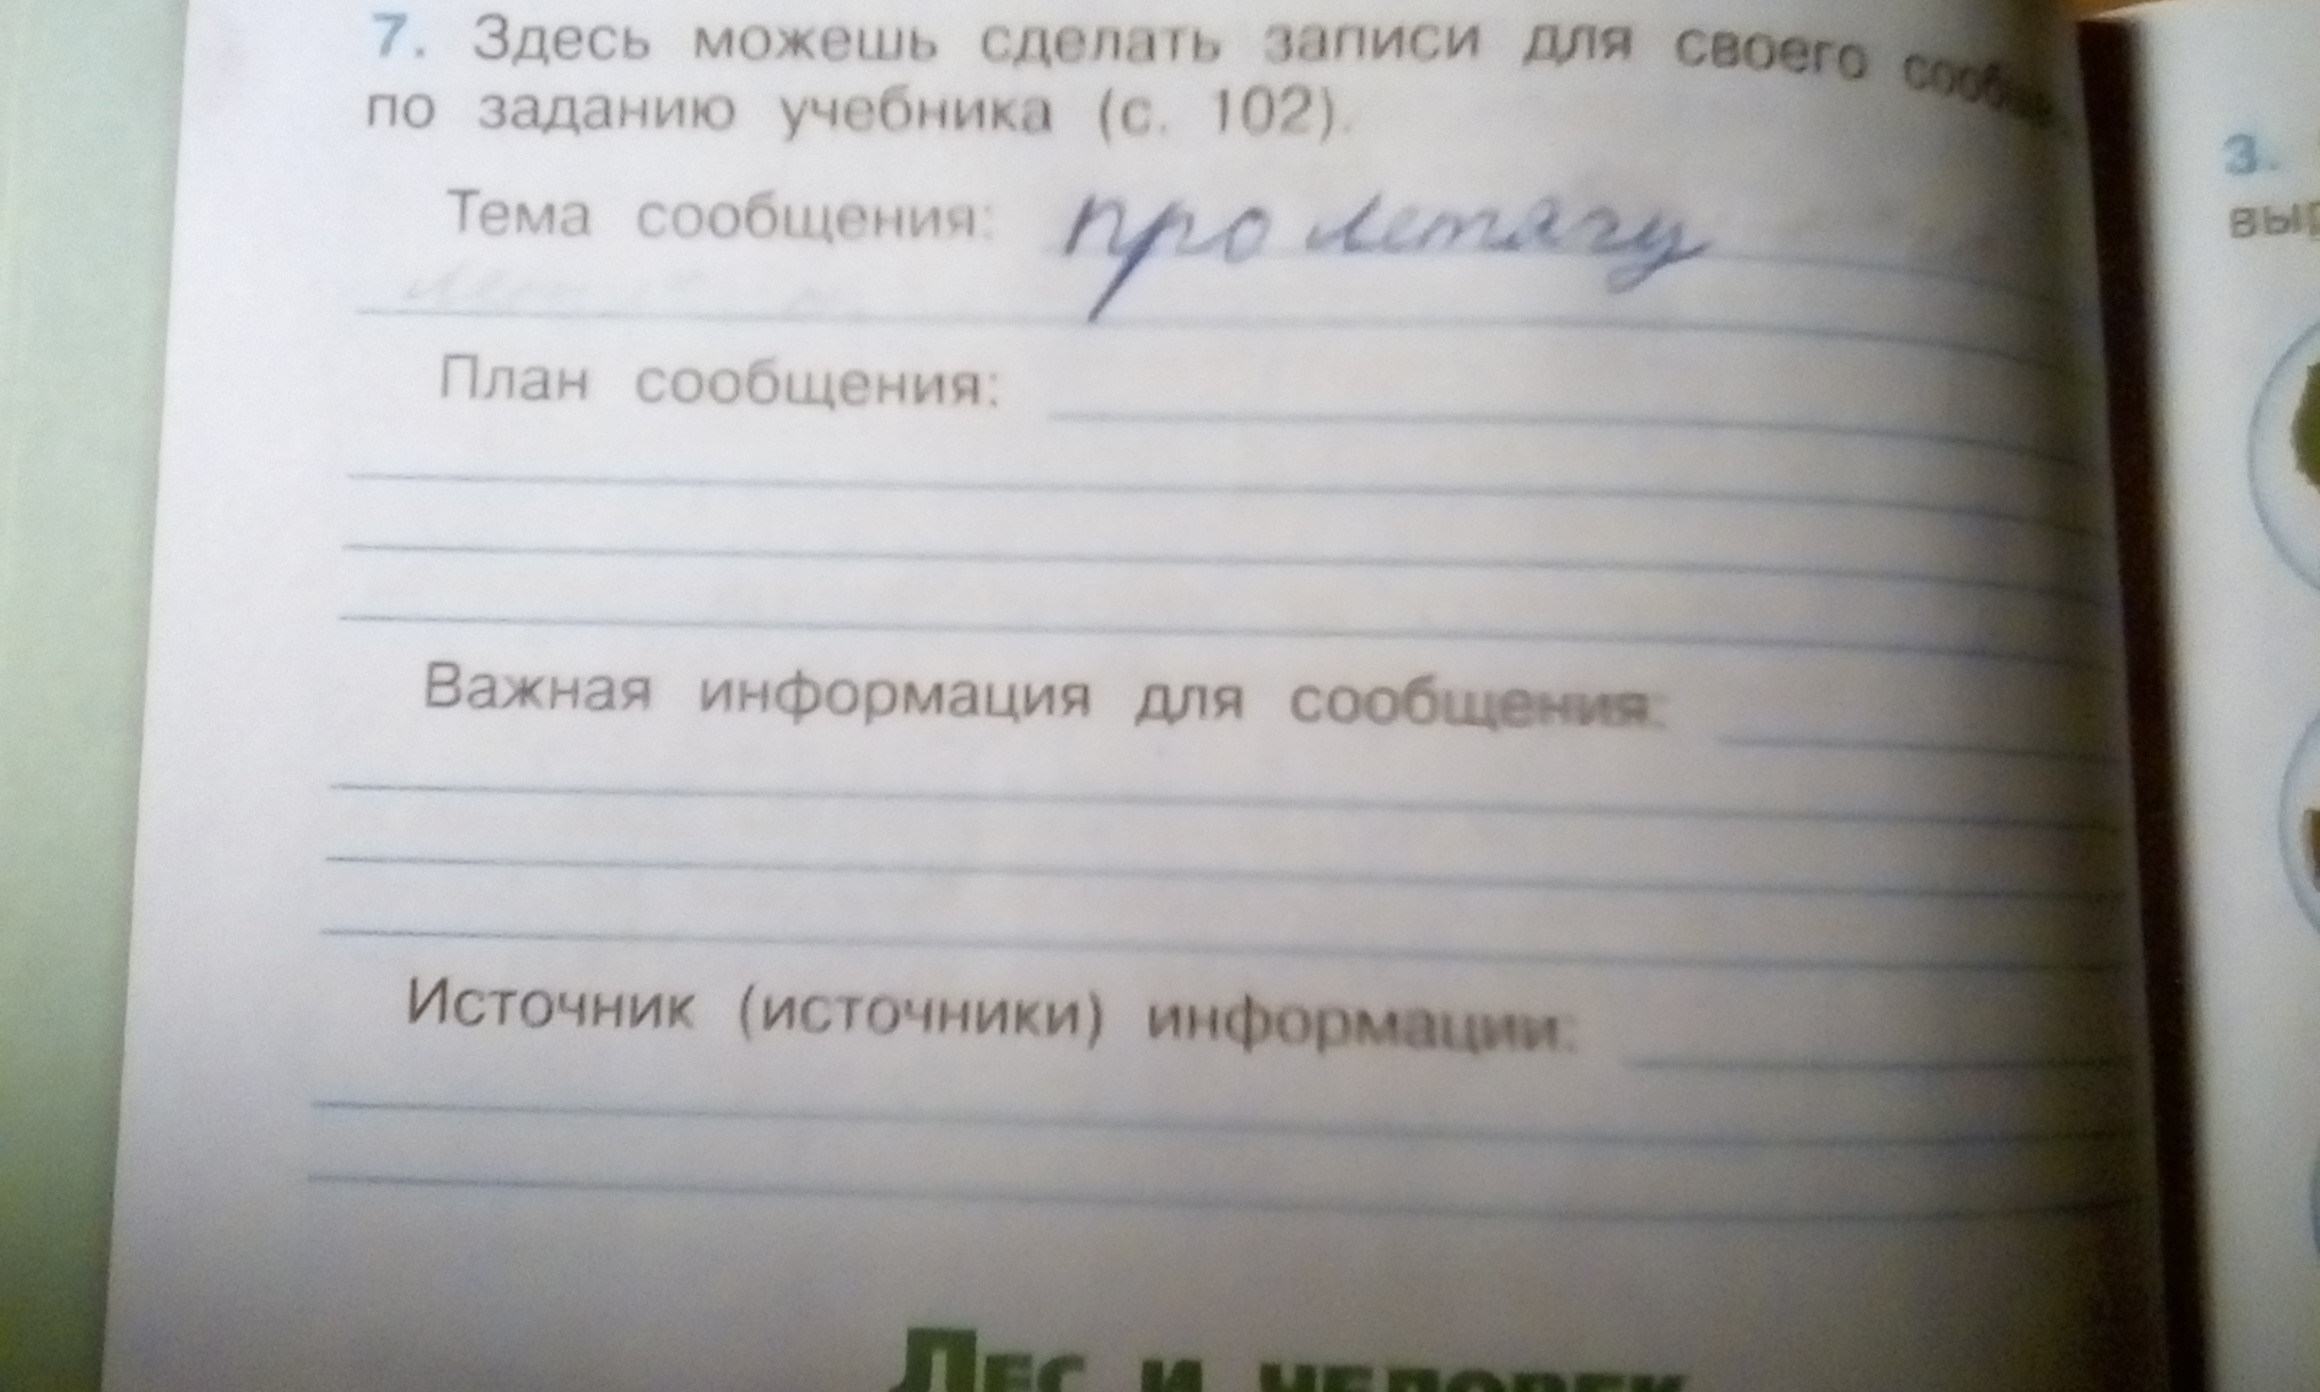 7. Здесь можешь сделать записи для своего
по заданию учебника (с. 102).
3.
Тема сообщения: про летягу
План сообщения:
Важная информация для сообщения:
Источник (источники) информации:
Лес и человек